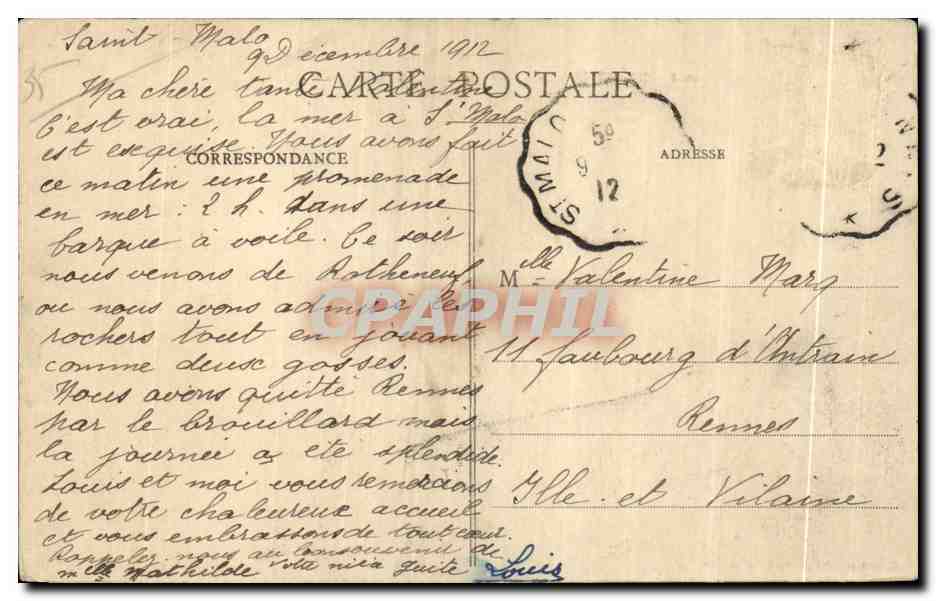 Saint-Malo
9 Décembre 1912
CARTE POSTALE
Ma chère tante Valentine
C'est vrai, la mer à St Malo
est exquise. Nous avons fait
CORRESPONDANCE
ce matin une promenade
en mer : 2 h. dans une
barque à voile. Ce soir
nous venons de Rotheneuf
ou nous avons admiré les
rochers tout en jouant
comme deux gosses.
Nous avons quitté Rennes
par le brouillard mais
la journée a été splendide.
Louis et moi vous remercions
de votre chaleureux accueil
et vous embrassons de tout cœur.
Rappelez-nous au bon souvenir de
Melle Mathilde Votre nièce Guite Louis
35
ADRESSE
ST MALO
5
9
12
Melle Valentine Marq
11 faubourg d'Antrain
Rennes
Ille et Vilaine
CPAPHIL